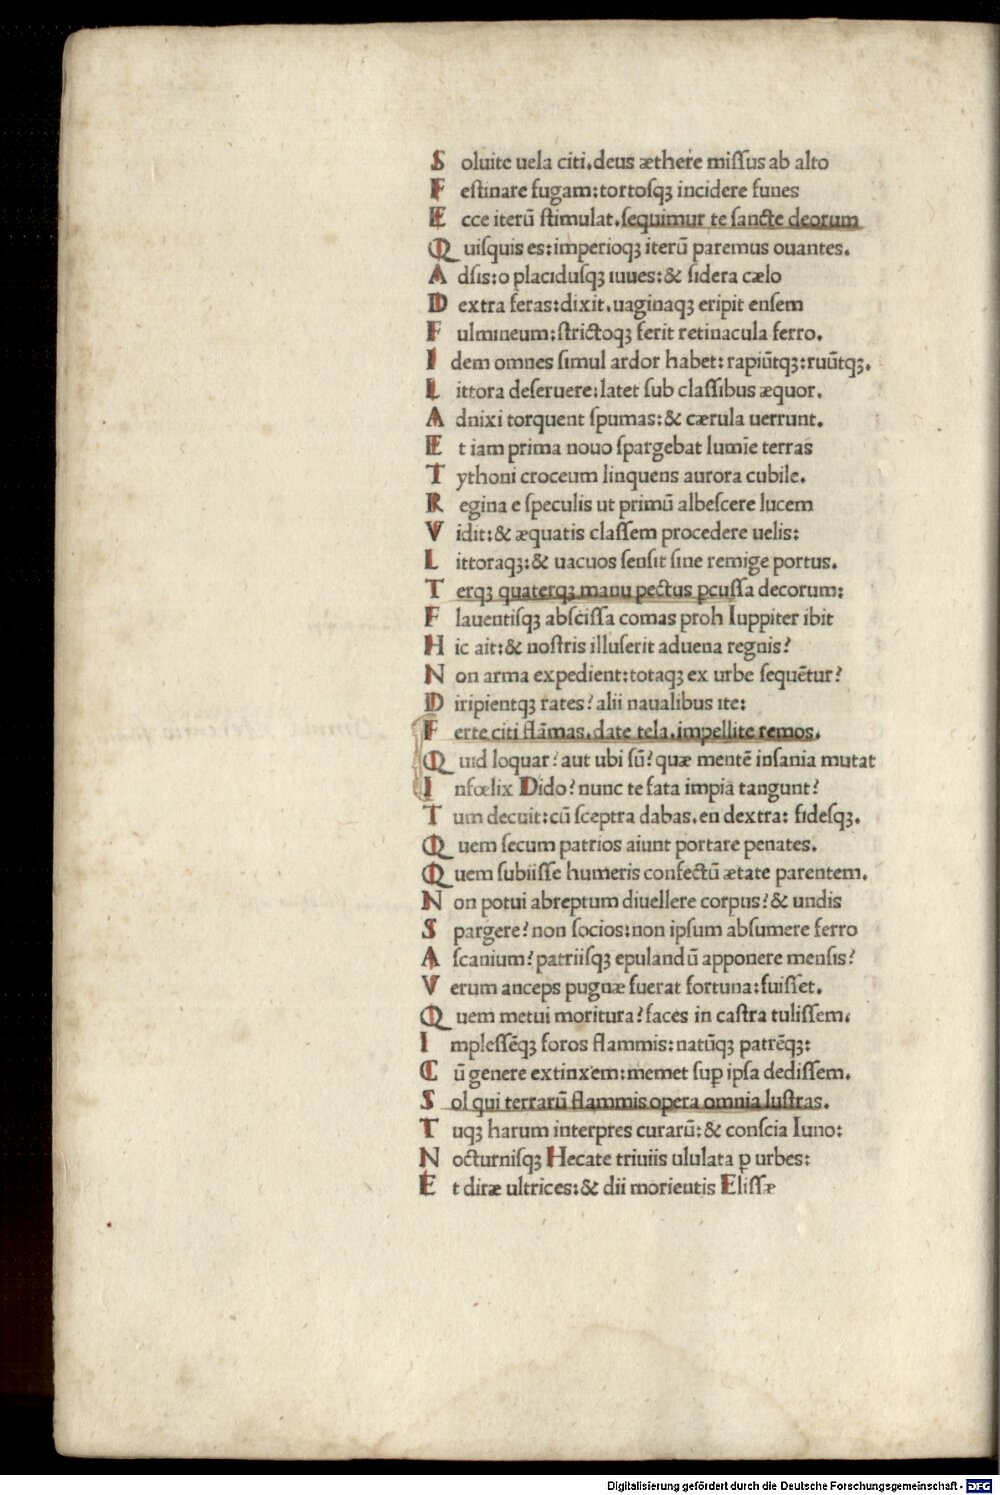 S oluite uela citi.deus æthere miſſus ab alto
F eſtinare fugam:tortoſqꝫ incidere funes
E cce iterū ſtimulat.ſequimur te ſancte deorum
Q uiſquis es:imperioqꝫ iterū paremus ouantes.
A dſis:o placiduſqꝫ iuues:& ſidera cælo
D extra feras:dixit.uaginaqꝫ eripit enſem
F ulmineum:ſtrictoqꝫ ferit retinacula ferro.
I dem omnes ſimul ardor habet:rapiūtqꝫ:ruūtqꝫ.
L ittora deſeruere:latet ſub claſſibus æquor.
A dnixi torquent ſpumas:& cærula uerrunt.
E t iam prima nouo ſpargebat lumīe terras
T ythoni croceum linquens aurora cubile.
R egina e ſpeculis ut primū albeſcere lucem
V idit:& æquatis claſſem procedere uelis:
L ittoraqꝫ:& uacuos ſenſit ſine remige portus.
T erqꝫ quaterqꝫ manu pectus ꝑcuſſa decorum:
F lauentiſqꝫ abſciſſa comas proh Iuppiter ibit
H ic ait:& noſtris illuſerit aduena regnis?
N on arma expedient:totaqꝫ ex urbe ſequētur?
D iripientqꝫ rates? alii naualibus ite:
F erte citi flāmas.date tela.impellite remos.
Q uid loquar? aut ubi sū? quæ mentē inſania mutat
I nfœlix Dido? nunc te fata impia tangunt?
T um decuit:cū ſceptra dabas.en dextra: fideſqꝫ.
Q uem ſecum patrios aiunt portare penates.
Q uem ſubiiſſe humeris confectū ætate parentem.
N on potui abreptum diuellere corpus? & undis
S pargere? non ſocios:non ipſum abſumere ferro
A ſcanium? patriiſqꝫ epulandū apponere menſis?
V erum anceps pugnæ fuerat fortuna:fuiſſet.
Q uem metui moritura? faces in caſtra tuliſſem.
I mpleſſēqꝫ foros flammis:natūqꝫ patrēqꝫ:
C ū genere extinxem:memet suꝑ ipſa dediſſem.
S ol qui terrarū flammis opera omnia luſtras.
T uqꝫ harum interpres curarū:& conſcia Iuno:
N octurniſqꝫ Hecate triuiis ululata ꝑ urbes:
E t diræ ultrices:& dii morientis Eliſſæ
Digitalisierung gefördert durch die Deutsche Forschungsgemeinschaft - DFG